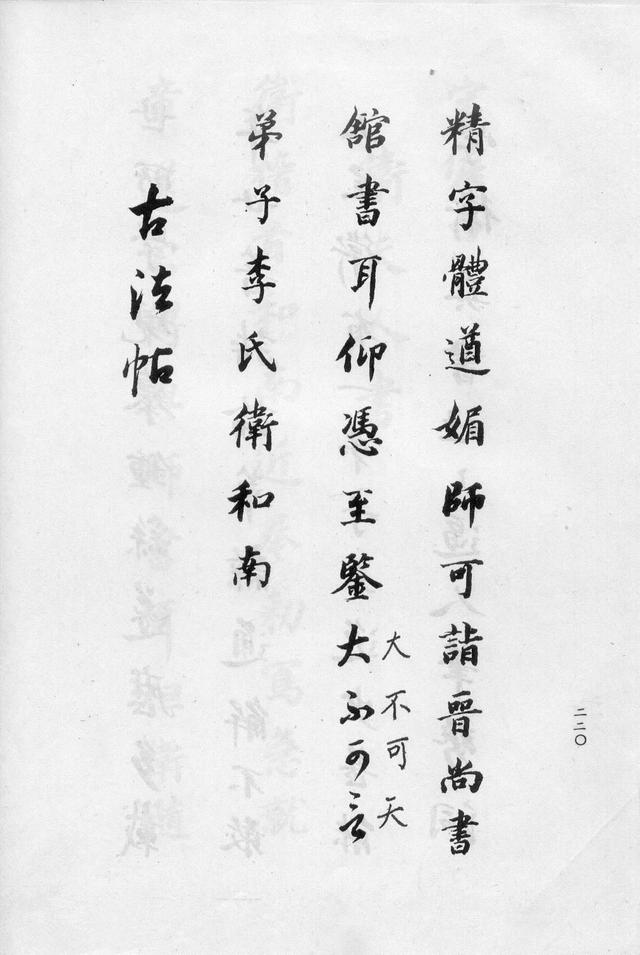 二二〇
精字體遒媚師可詣晉尚書
舘書耳仰憑至鑒大不可言
大不可
弟子李氏衛和南
古法帖